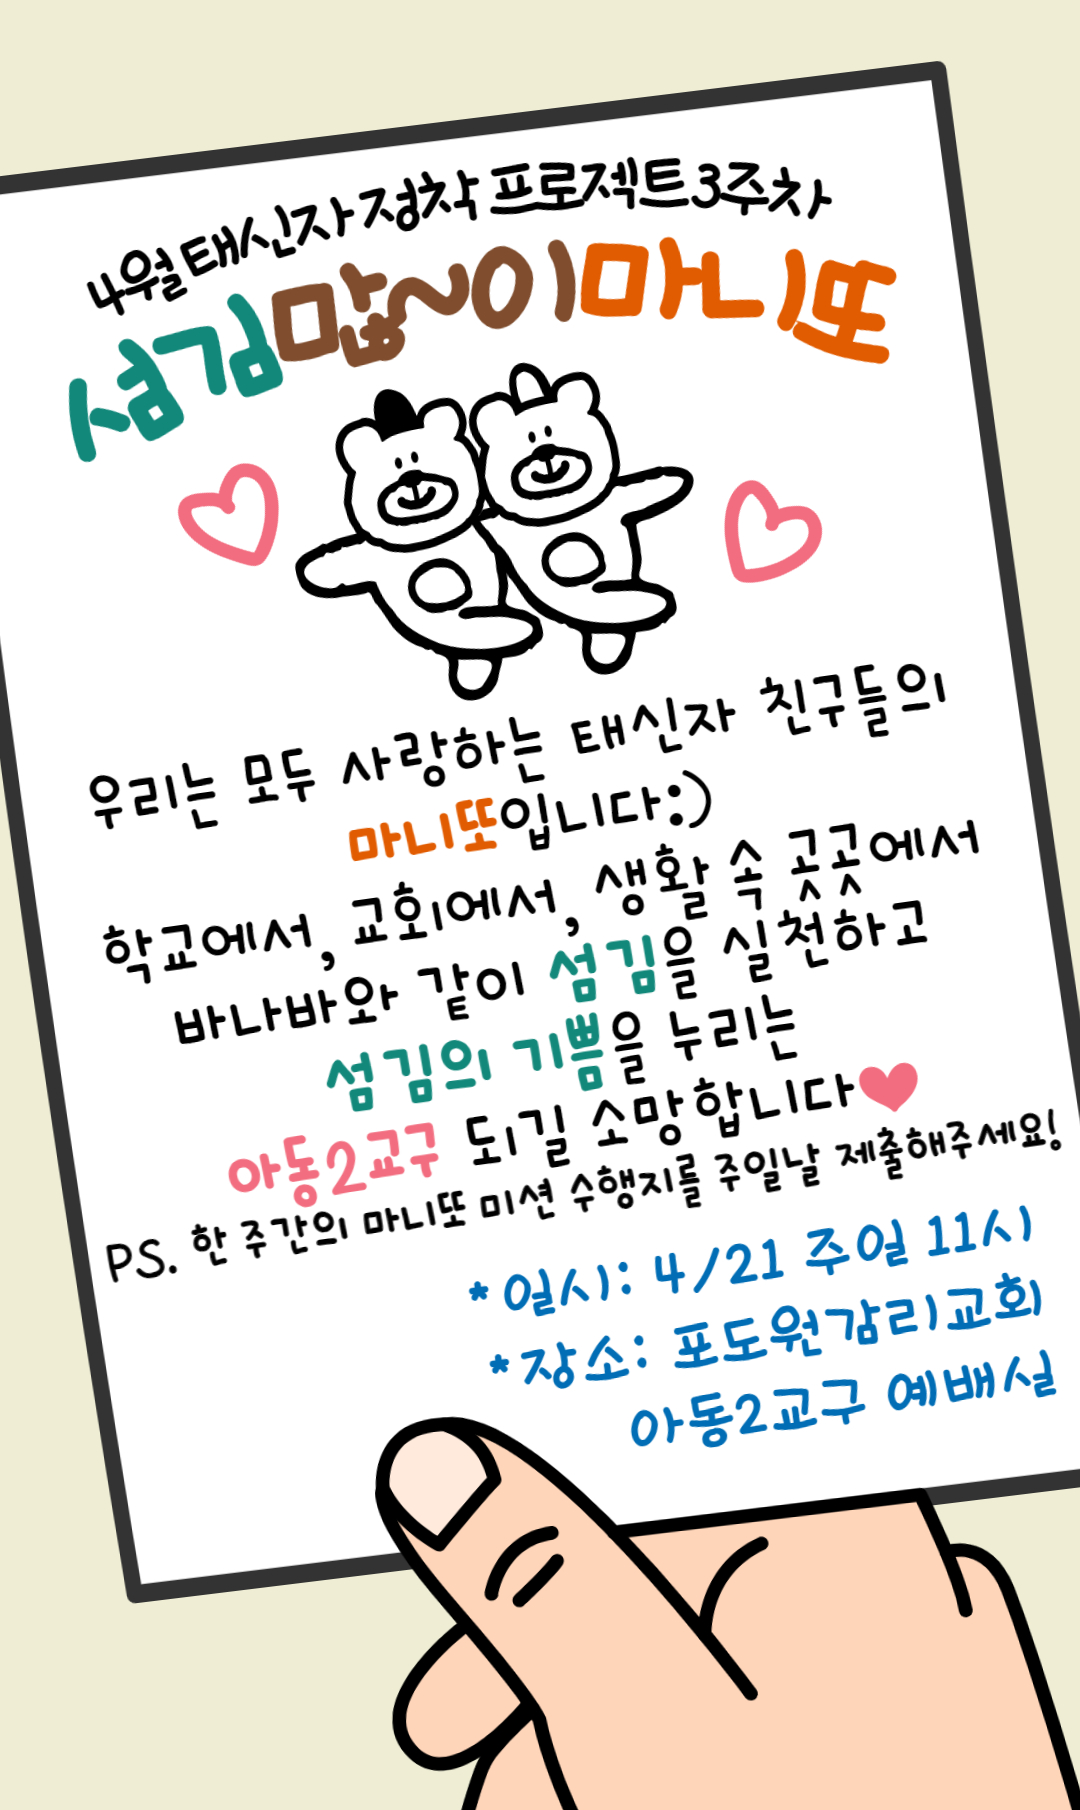 4월 태신자 정착 프로젝트 3주차
섬김많~이마니또
우리는 모두 사랑하는 태신자 친구들의
마니또입니다:)
학교에서, 교회에서, 생활 속 곳곳에서
바나바와 같이 섬김을 실천하고
섬김의 기쁨을 누리는
아동2교구 되길 소망합니다
PS. 한 주간의 마니또 미션 수행지를 주일날 제출해주세요!
*일시: 4/21 주일 11시
*장소: 포도원감리교회
아동2교구 예배실